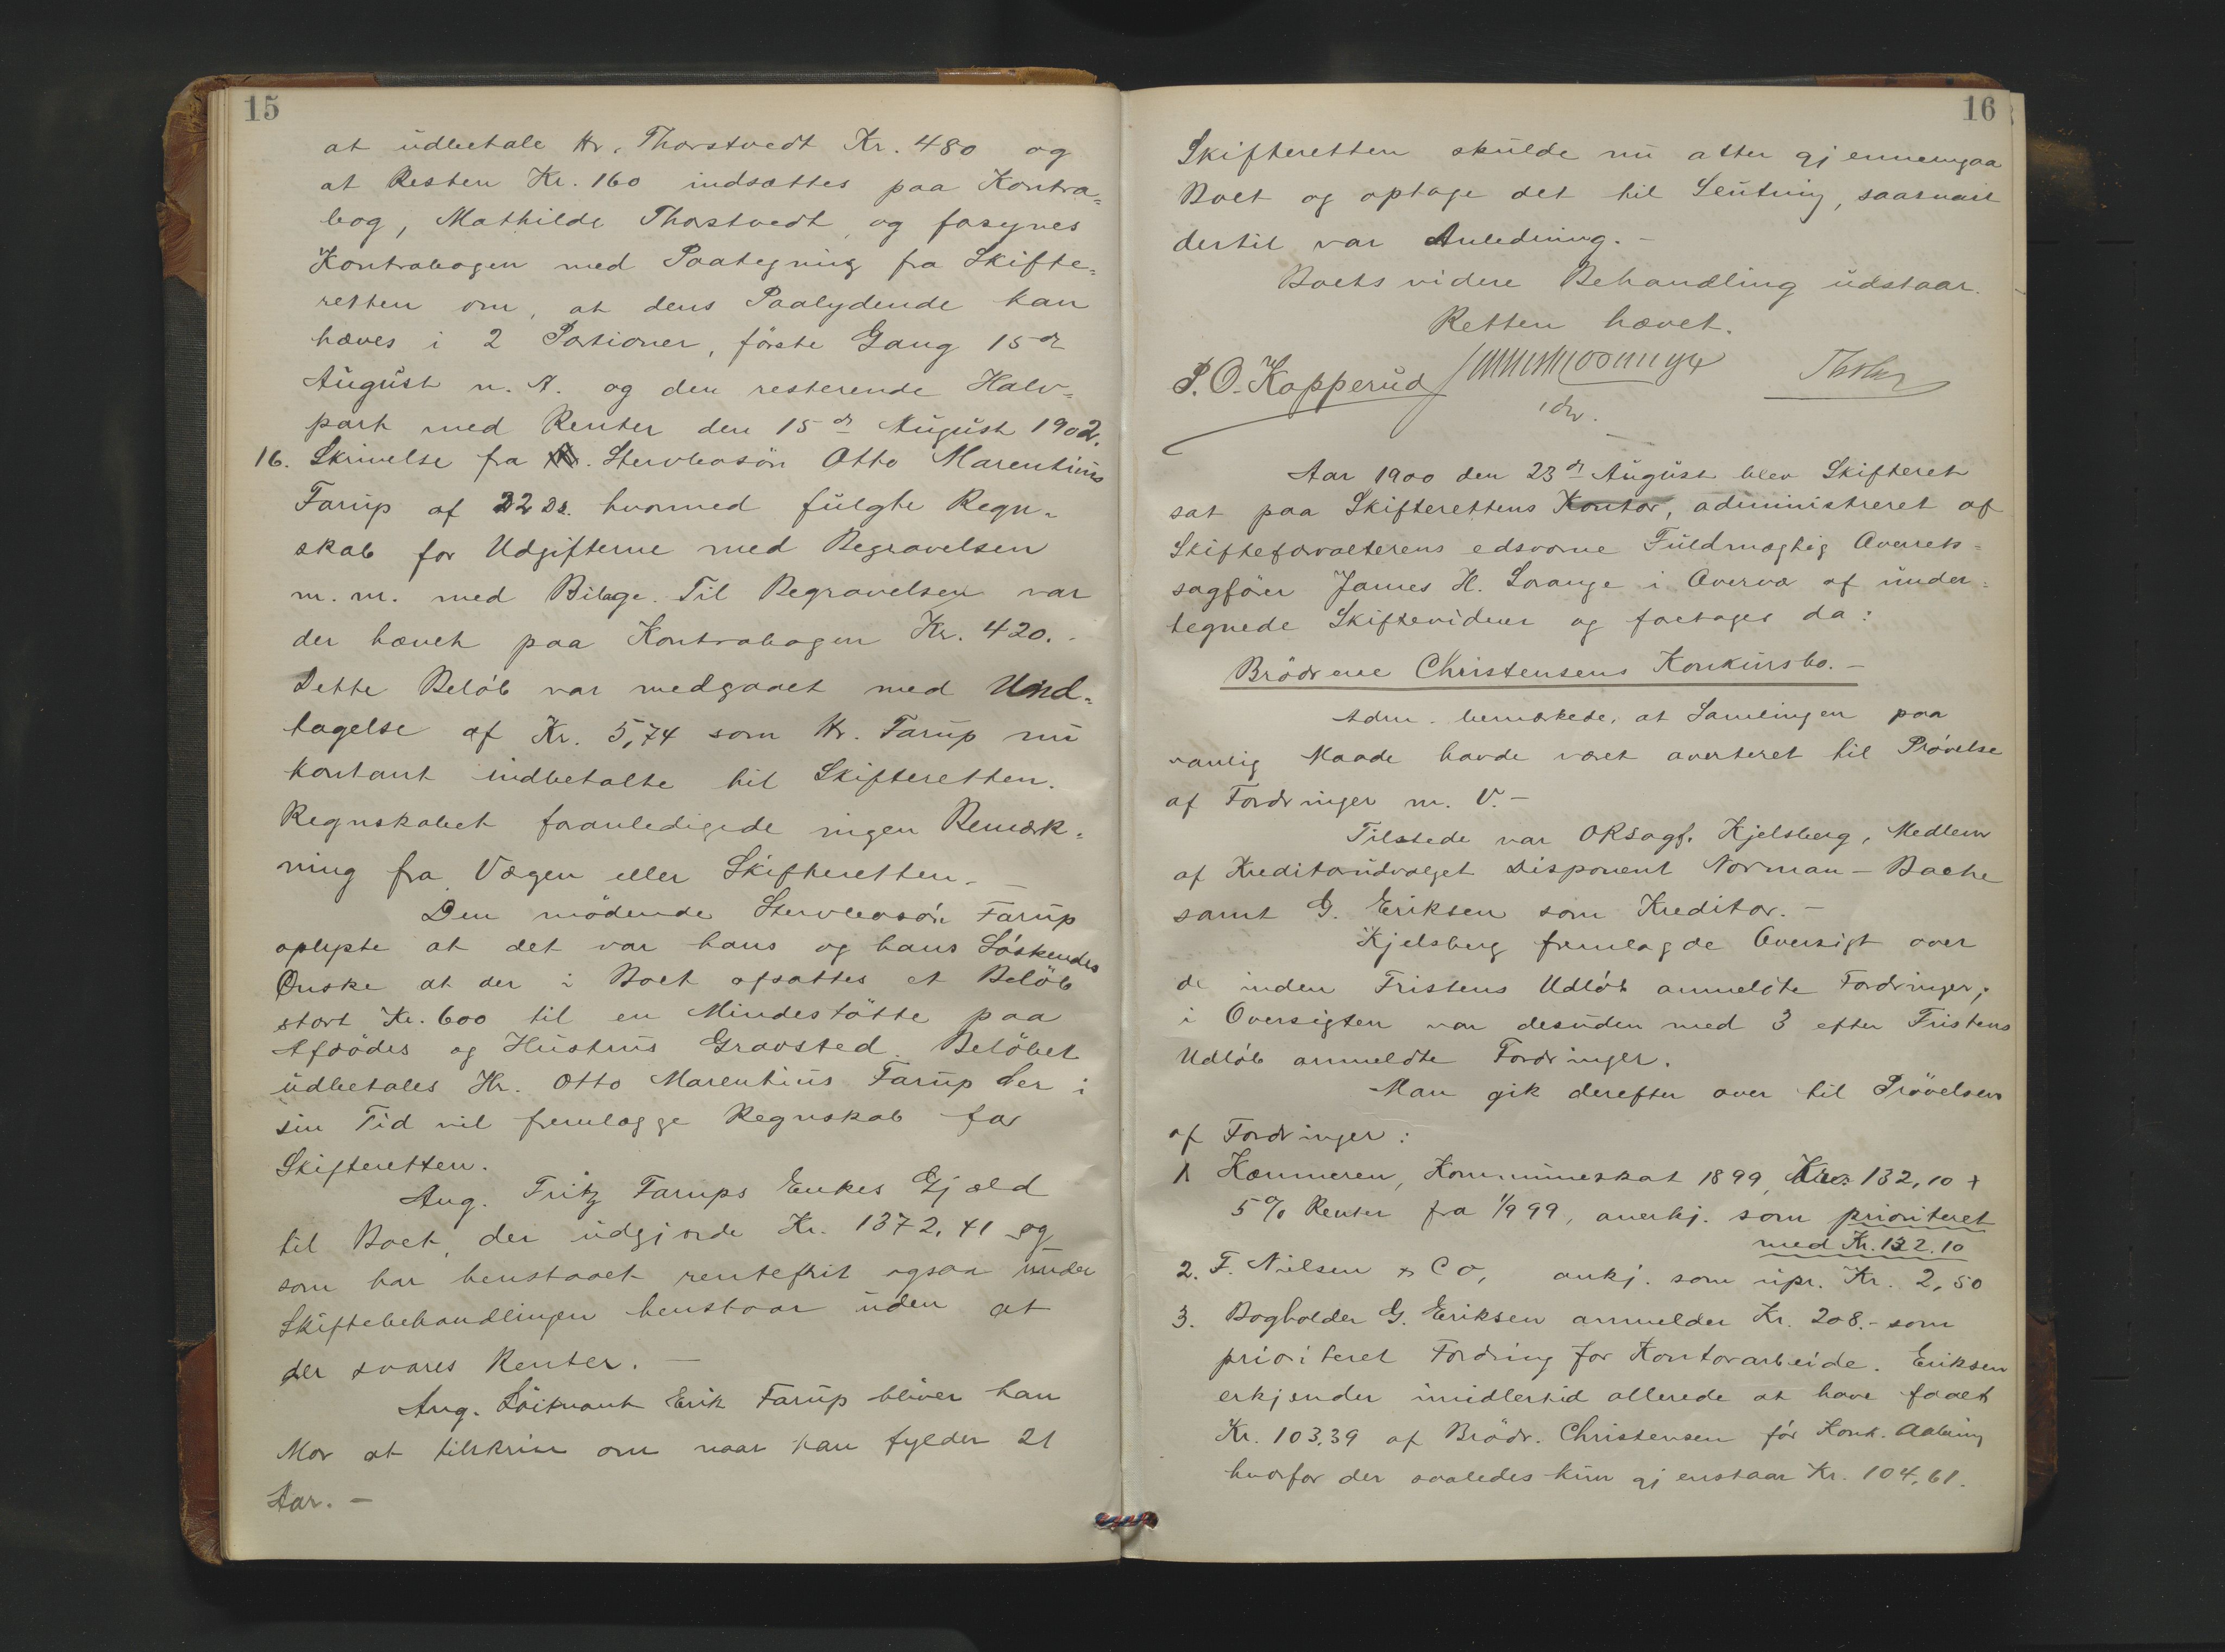 15
at udbetale Hr. Thorstvedt Kr. 480 og
at Resten Kr. 160 indsættes paa Kontra=
bog, Mathilde Thorstvedt, og forsynes
Kontrabogen med Paategning fra Skifte=
retten om, at dens Paalydende kan
hæves i 2 Portioner, første Gang 15de
August n. A. og den resterende Halv=
part med Renter den 15de August 1902.
16. Skrivelse fra Stervbosön Otto Marentius
Farup af 22 Ds. hvormed fulgte Regn=
skab for Udgifterne med Begravelsen
m. m. med Bilage. Til Begravelsen var
der hævet paa Kontrabogen Kr. 420.-
Dette Belöb var medgaaet med Und=
tagelse af Kr. 5,74 som Hr. Farup nu
kontant indbetalte til Skifteretten.
Regnskabet foranledigede ingen Bemærk=
ning fra Værgen eller Skifteretten. -
Den mödende Stervbosön Farup
oplyste at det var hans og hans Söskendes
Önske at der i Boet afsattes et Belöb
stort Kr. 600 til en Mindestötte paa
Afdödes og Hustrus Gravsted. Belöbet
udbetales Hr. Otto Marentius Farup der i
sin Tid vil fremlægge Regnskab for
Skifteretten.
Ang. Fritz Farups Enkes Gjæld
til Boet, der udgjorde Kr. 1372,41 og
som har henstaaet rentefrit ogsaa under
Skiftebehandlingen henstaar uden at
der svares Renter. -
Ang. Löitnant Erik Farup bliver han
Mor at tilskrive om naar han fylder 21
Aar. -
16
Skifteretten skulde nu atter gjennemgaa
Boet og optage det til Slutning, saasnart
dertil var Anledning. -
Boets videre Behandling udstaar.
Retten hævet.
P. O. Kopperud
Aar 1900 den 23de August blev Skifteret
sat paa Skifterettens Kontor, administreret af
Skifteforvalterens edsvorne Fuldmægtig Overrets=
sagförer James H. Lorange i Overvær af under=
tegnede Skiftevidner og foretoges da:
Brödrene Christensens Konkursbo. -
Adm. bemærkede, at Samlingen paa
vanlig Maade havde været averteret til Prövelse
af Fordringer m. V. -
Tilstede var ORSagf. Kjelsberg, Medlem
af Kreditorudvalget Disponent Norman - Bache
samt G. Eriksen som Kreditor. -
Kjelsberg fremlagde Oversigt over
de inden Fristens Udlöb anmeldte Fordringer;
i Oversigten var desuden med 3 efter Fristens
Udlöb anmeldte Fordringer.
Man gik derefter over til Prövelsen
af Fordringer:
1 Kæmneren, Kommuneskat 1899, Kr. 132,10 +
5 % Renter fra 1/9 99, anerkj. som prioriteret
med Kr. 132.10
2. F. Nielsen & Co, ankj. som upr. Kr. 2,50
3. Bogholder G. Eriksen anmelder Kr. 208.- som
prioriteret Fordring for Kontorarbeide. Eriksen
erkjender imidlertid allerede at have faaet
Kr. 103.39 af Brödr. Christensen för Konk. Aabning
hvorfor der saaledes kun gjenstaar Kr. 104,61.